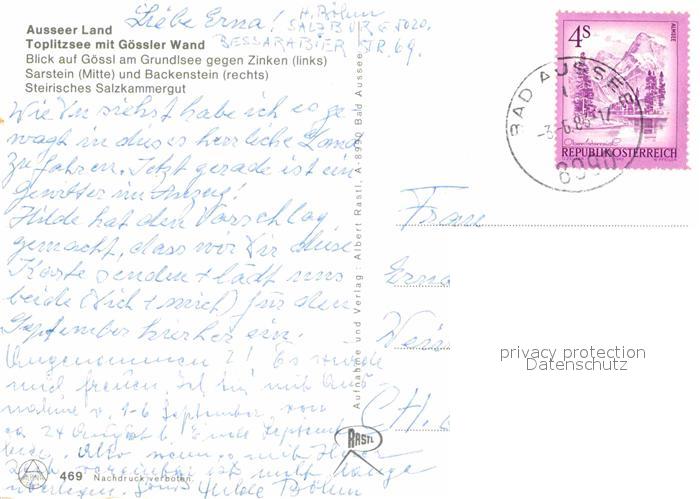 Liebe Erna!
H. Böhm
SALZBURG 5020.
BESSARABIER STR. 69.
Ausseer Land
Toplitzsee mit Gössler Wand
Blick auf Gössl am Grundlsee gegen Zinken (links)
Sarstein (Mitte) und Backenstein (rechts)
Steirisches Salzkammergut
Wie Du siehst habe ich es ge
wagt in dieses herrliche Land
zu fahren. Jetzt gerade ist ein
Gewitter im Anzug!
Hilde hat den Vorschlag
gemacht, dass wir Dir diese
Karte senden + lädt uns
beide (Dich + mich) für den
September hierher ein.
Angenommen ?! Es würde
mich freuen, ich bin mit Aus
nahme v. 1-6 September von
ca 24 August b. Ende Septem
Hilde Böhm
469 Nachdruck verboten.
Aufnahme und Verlag: Albert Rastl, A-8990 Bad Aussee
RASTL
4S
ALMSEE
REPUBLIK ÖSTERREICH
BAD AUSSEE
8990
Frau
Erna
CH.
privacy protection
Datenschutz